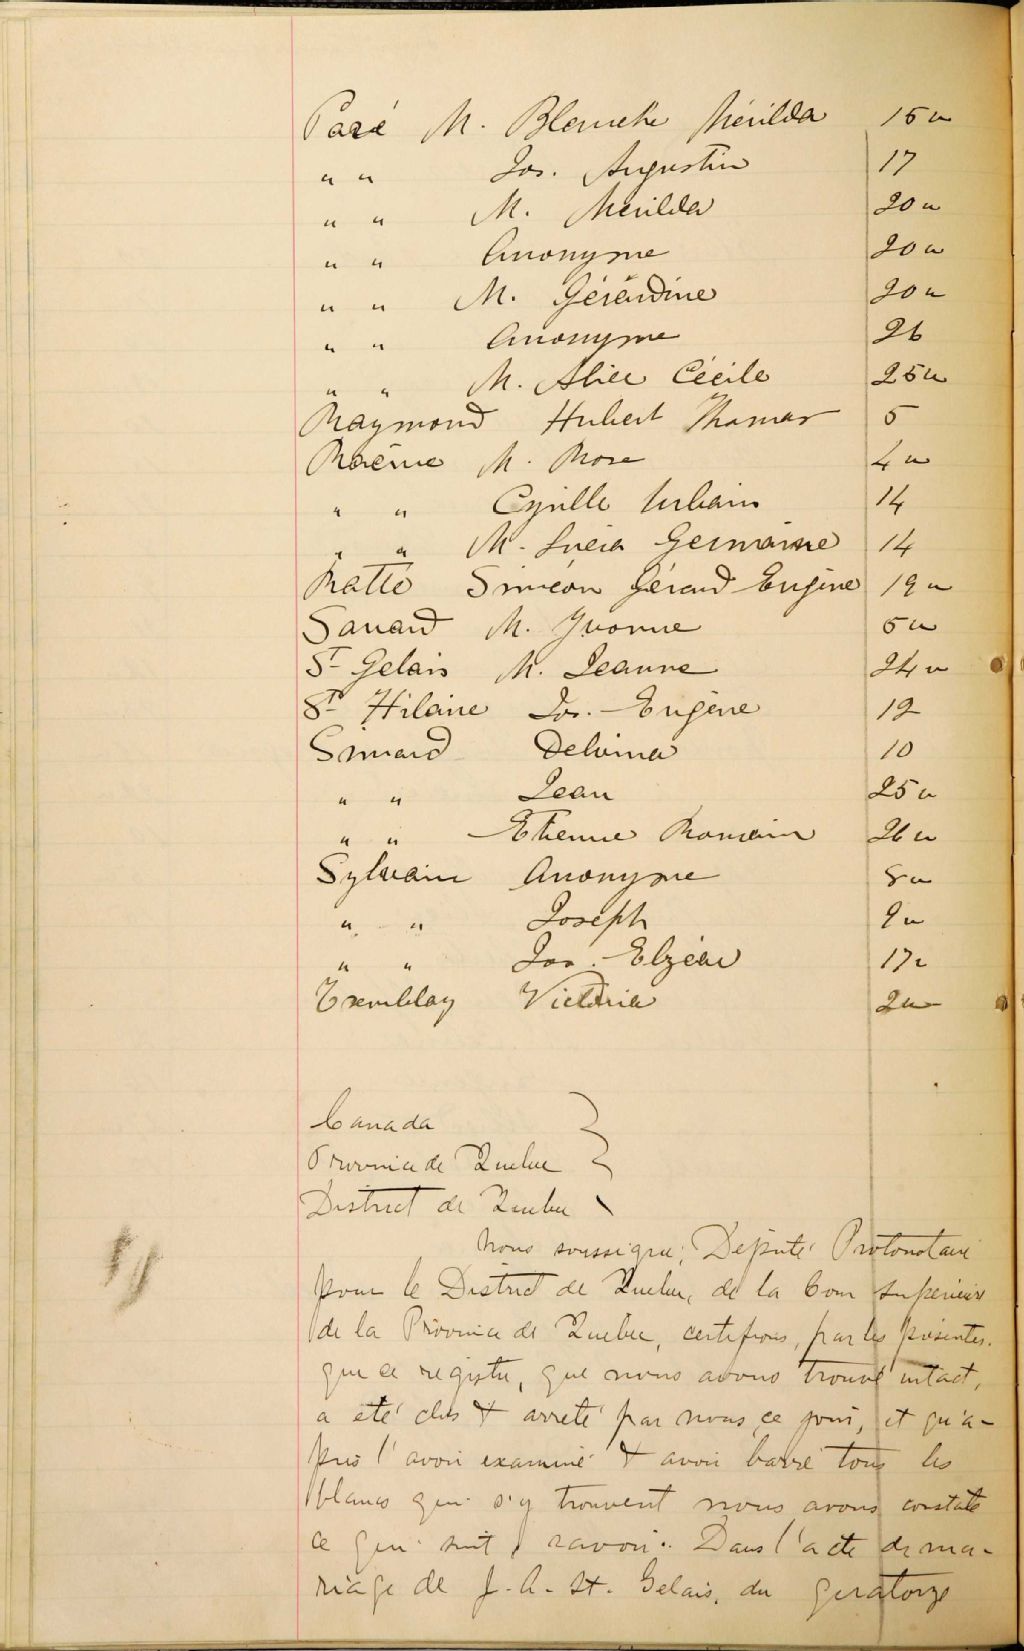 Paré M. Blanche Mérilda 15 u
" " Jos. Augustin 17
" " M. Mérilda 20 u
" " Anonyme 20 u
" " M. Gérardine 20 u
" " Anonyme 26
" " M. Alice Cécile 25 u
Raymond Hubert Thomas 5
Racine M. Rose 4 u
" " Cyrille Urbain 14
" " M. Lucia Germaine 14
Ratté Siméon Gérard Eugène 19 u
Savard M. Yvonne 5 u
St Gelais M. Jeanne 24 u
St Hilaire Jos. Eugène 12
Simard Delvina 10
" " Jean 25 u
" " Etienne Romain 26 u
Sylvain Anonyme 8 u
" " Joseph 9 u
" " Jos. Elzéar 17 u
Tremblay Victoria 2 u
Canada
Province de Québec
District de Québec
Nous soussigné, Député Protonotaire
pour le District de Québec, de la Cour Supérieure
de la Province de Québec, certifions, par les présentes,
que ce registre, que nous avons trouvé intact,
a été clos & arrêté par nous, ce jour, et qu'a-
près l'avoir examiné & avoir barré tous les
blancs qui s'y trouvent nous avons constaté
ce qui suit, savoir: Dans l'acte de ma-
riage de J. A. St. Gelais, du quatorze